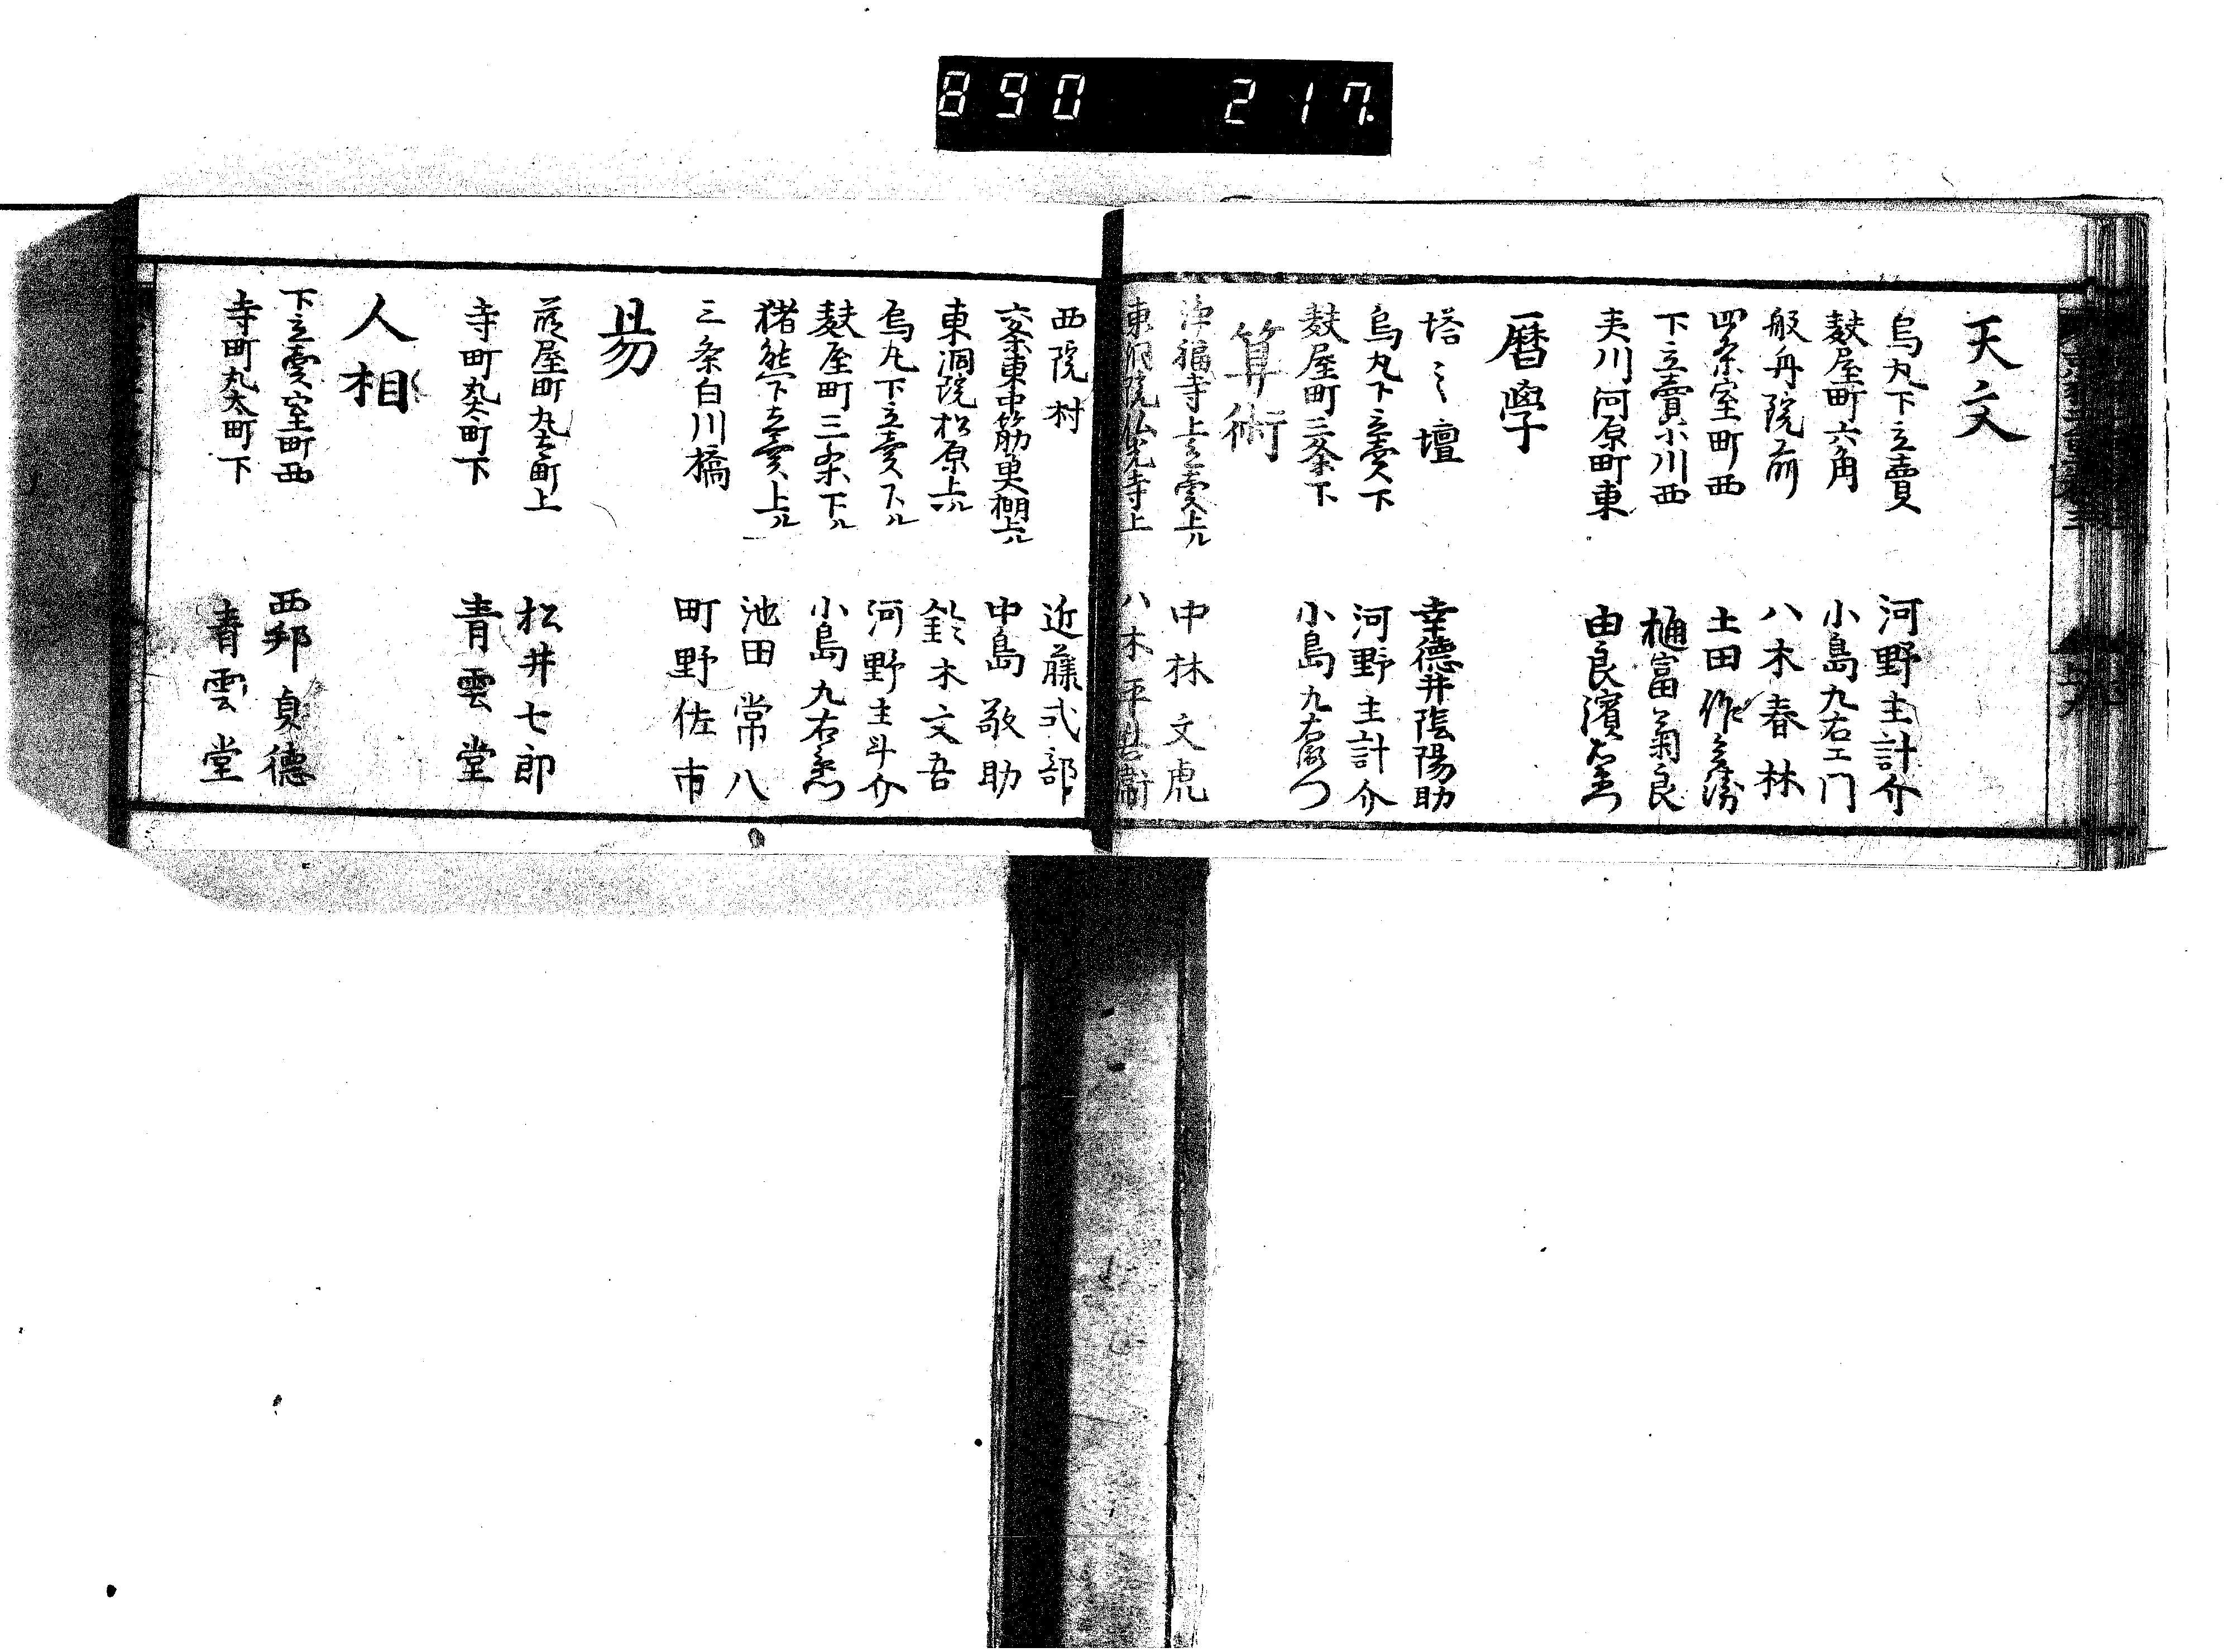 890 217.
天文
烏丸下立賣 河野主計介
麸屋町六角 小島九右エ门
般舟院前 八木春林
四条室町西 土田作兵衛
下立賣小川西 樋富菊良
夷川河原町東 由良濱右衛门
暦學
塔之壇 幸德井陰陽助
烏丸下立賣下 河野主計介
麸屋町三条下 小島九右衛门
算術
浄福寺上立賣上ル 中林文虎
東洞院仏光寺上 八木平兵衞
西院村 近藤式部
三条東中筋魚棚上ル 中島敬助
東洞院松原上ル 鈴木文吾
烏丸下立賣下ル 河野主斗介
麸屋町三条下ル 小島九右衛门
猪熊下立賣上ル 池田常八
三条白川橋 町野佐市
易
麸屋町丸太町上 松井七郎
寺町丸太町下 青雲堂
人相
下立賣室町西 西邨貞德
寺町丸太町下 青雲堂